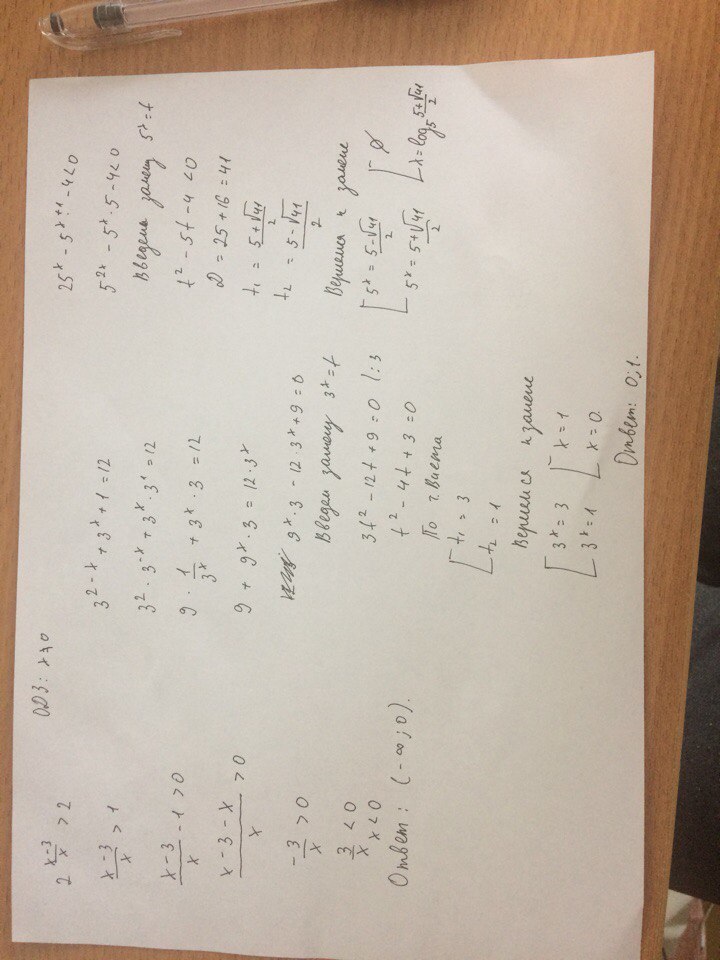 2^((x-3)/x) > 2
ОДЗ: x≠0
(x-3)/x > 1
(x-3)/x - 1 > 0
(x-3-x)/x > 0
-3/x > 0
3/x < 0
x < 0
Ответ: (-∞; 0).
3^(2-x) + 3^(x+1) = 12
3² · 3^(-x) + 3^x · 3¹ = 12
9 · 1/3^x + 3^x · 3 = 12
9 + 9^x · 3 = 12 · 3^x
9^x · 3 - 12 · 3^x + 9 = 0
Введем замену 3^x = t
3t² - 12t + 9 = 0 |:3
t² - 4t + 3 = 0
По т. Виета
[ t₁ = 3
t₂ = 1
Вернемся к замене
[ 3^x = 3 [ x = 1
3^x = 1 x = 0
Ответ: 0; 1.
25^x - 5^(x+1) - 4 < 0
5^(2x) - 5^x · 5 - 4 < 0
Введем замену 5^x = t
t² - 5t - 4 < 0
D = 25 + 16 = 41
t₁ = (5+√41)/2
t₂ = (5-√41)/2
Вернемся к замене
[ 5^x = (5-√41)/2 [ ∅
5^x = (5+√41)/2 x = log₅ (5+√41)/2